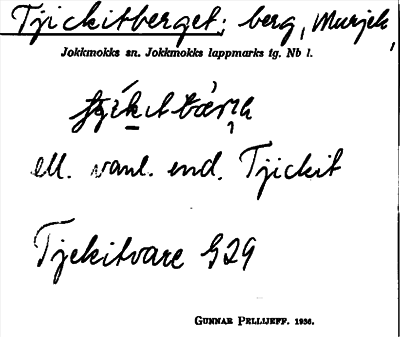 Tjickitberget; berg, Murjek,
Jokkmokks sn. Jokkmokks lappmarks tg. Nb l.
ell. vanl. end. Tjickit
Tjekitvare G29
GUNNAR PELLIJEFF. 1956.